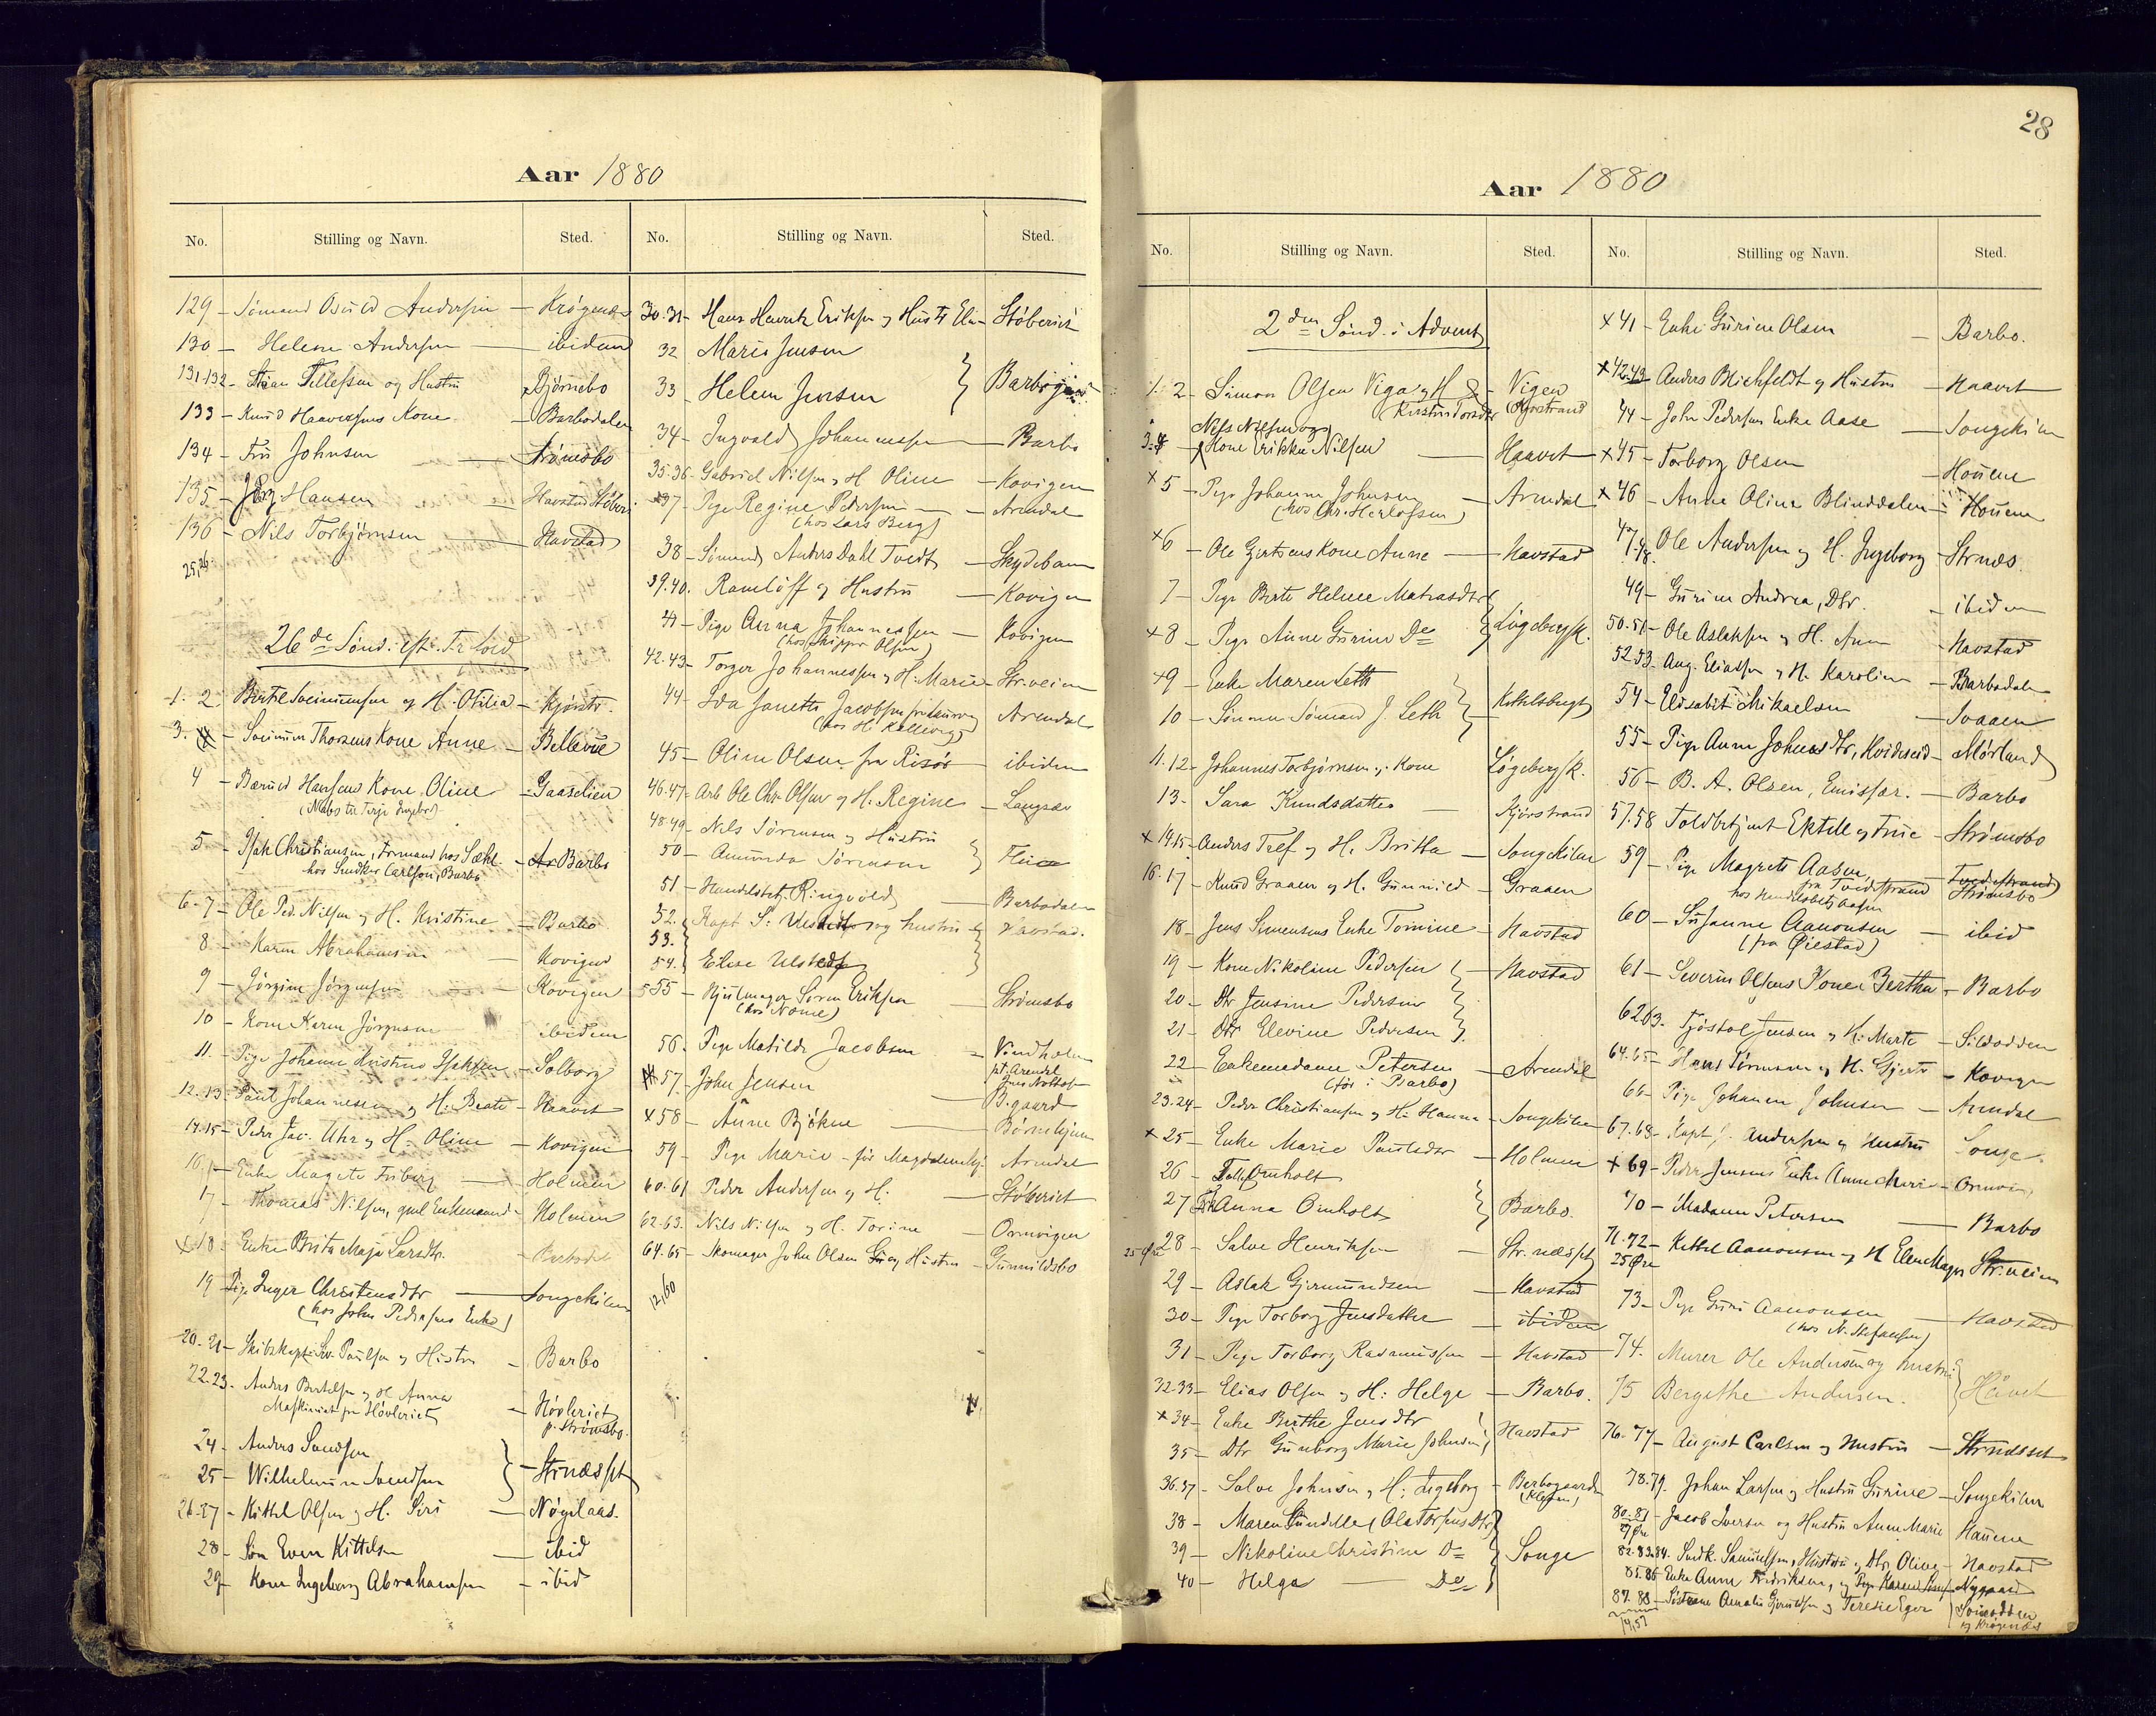 Aar 1880
No. Stilling og Navn. Sted. No. Stilling og Navn. Sted.
129 - Sømand Osuld Andersen - Krøgenes
130 - Helene Andersen - ibidem
131-132 - Tellefsen og Hustru Bjørnebo
133 - Knud Haaversens Kone - Barbodalen
134 - Fru Johnsen - Strømsbo
135 - Hansen - Havstad Støberi
136 - Nils Torbjørnsen - Havstad
25,26
26de Sønd. eft. Tr.
1. 2. Bertil og H. Otilia - Kjørstr.
3. - Thorsens Kone Anne - Bellevue
4 - Hansens Kone Oline - Gaaselien
5 - Isak Christiansen, Formand hos
hos Snedker Carlson, Barbo - Barbo
6-7 - Ole Ped. Nilsen og H. Kristine - Barbo
8 - Karen Abrahamsen - Kovigen
9 - Jørgine Jørgensen - Kovigen
10 - Kone Karen Jørgensen ibidem
11 - Pige Johanne Kristine Isaksen - Solborg
12.13 - Paul Johannesen og H. Beate - Haavet
14.15 - Peder Jac. Uhr og H. Oline - Kovigen
16 - Enke Magrete Friberg - Holmen
17 - Thomas Nilsen, gml Enkemand - Holmen
x 18 - Enke Brita Maja Larsdtr.
19 - Pige Inger Christensdtr - Songekilen
(hos John Pedersens Enke)
20.21 - Skibskapt. Sv. Paulsen og Hustru - Barbo
22.23. Anders Bertelsen og H. Anna
Maskinist paa Høvleriet - Høvleriet p. Strømsbo.
24 - Anders Svendsen
25 - Wilhelmine Svendsen } - Strnæsset
26.27 - Kittel Olsen og H. Siri - Nøgilaas.
28 - Søn Even Kittelsen - ibid
29 - Kone Ingeborg Abrahamsen - ibid
30.31 - Hans Henrik Eriksen og Hustr Elen - Støberiet
32 Maria Jensen
33 - Helene Jensen } Barbogaard
34 - Ingvald Johannessen - Barbo
35.36 - Gabriel Nilsen og H Oline - Kovigen
x37 - Pige Regine Pedersen - Arendal
(hos Lars Berg)
38 - Sømand Anders Dahl Tvedt - Skydebanen
39.40. Ramlöff og Hustru - Kovigen
41 - Pige Anna Johannessen - Kovigen
(hos Skipper Olsen)
42.43 - Torger Johannessen og H. Marie - Str.veien
44 - Ida Janette Jacobsen Arendal
(hos H. Kallevig)
45 - Oline Olsen fra Risør - ibidem
46.47 - Arb. Ole Chr. Olsen og H. Regine - Langsæv
48.49 - Nils Sørensen og Hustru
50 - Amunda Sørensen }
51 - Handelsbetj. Ringvold - Barbodalen
52. Kapt S. Ulstedt og hustru
53.
54. Elise Ulstedt } Havstad.
55 - Hjulmager Søren Eriksen - Strømsbo
56 - Pige Matilde Jacobsen - Vindholm
pt Arendal
57 - John Jensen - B.gaard
x 58 - Anne Bjökne - Børnehjem
59 - Pige Marie - før Magdalenehj. Arendal
60.61 Peder Andersen og H. - Støberiet
62.63. Nils Nilsen og H. Torine - Ormvigen
64.65 - Skomager John Olsen og Hustru - Gunnildsbo
12,60
28
Aar 1880
No. Stilling og Navn. Sted. No. Stilling og Navn. Sted.
2den Sønd. i Advent
1. 2 - Simon Olsen Viga og H - Vigen
(Kirstin Torsdtr) (Kjørstrand)
Nils Nilsen og
3.4 Kone Erikka Nilsen - Haavet
x 5 - Pige Johanne Johnsen - Arendal
(hos Chr. Herlofsen)
x6 - Ole Gjertsens Kone Anne - Havstad
7 - Pige Berte Helene Matiasdtr
x 8 - Pige Anne Gurine Do } Lögebergsk.
x9 - Enke Maren Leth
10 - Sønnen Sømand J. Leth } Kittelsbugt
11.12 - Johannes Torbjørnsen og Kone Lögebergsk.
13 - Sara Knudsdatter - Kjörstrand
x 14.15 - Anders Tref og H. Britta - Songekilen
16.17 - Knud Graaen og H. Gunnild - Graaen
18 - Jens Simensens Enke Tomine - Havstad
19 - Kone Nikoline Pedersen - Havstad
20 - Dtr Jensine Pedersen
21 - Dtr Elevine Pedersen
22 - Enkemadame Petersen - Arendal
(før i Barbo)
23.24 - Peder Christiansen og H. Hanna - Songekilen
x 25 - Enke Marie Paulsdtr - Holmen
26 - Omholt
27 Anna Omholt } Barbo.
25 Øre 28 - Salve Henriksen - Str.næsset
29 - Aslak Gjermundsen - Havstad
30 - Pige Torborg Jensdatter - ibidem
31 - Pige Torborg Rasmussen - Havstad
32.33 - Elias Olsen og H. Helge - Barbo.
x 34 - Enke Birthe Jensdtr
35 - Dtr Gunborg Marie Johnsen } Havstad
36.37 - Salve Johnsen og H. Ingeborg - Barbogaarden
38 - Maren Gundelle (Ole Torsens Dtr)
39 - Nikoline Christine Do } Songe
40 - Helga - Do
x 41 - Enke Gurine Olsen - Barbo.
x 42.43 Anders Blichfeldt og Hustru - Haavet
44 - John Pedersens Enke Aase - Songekilen
x 45 - Torborg Olsen - Houene
x 46 - Anne Oline Blinddalen - Houene
47.48. Ole Andersen og H. Ingeborg - Strnæs.
49 - Gurine Andrea, Dtr. - ibidem
50.51 - Ole Aslaksen og H. Anne - Havstad
52.53 - Aug. Eliassen og H. Karoline - Barbodalen
54 - Elisabet Mikaelsen - Svaaen
55 - Pige Anne Johnsdtr, Hvideseid - Mørland
56 - B. A. Olsen, Emissær. - Barbo
57.58 Toldbetjent Ektell og Frue - Strømsbo
59 - Pige Magrete Aasen, fra Tvedestrand - Tvedestrand
hos Handelsbetj Aasen Strømsbo
60 - Susanne Aanonsen - ibid
(fra Øiestad)
61 - Severin Olsens Kone Bertha - Barbo
62.63. Tjöstol Jensen og H. Marte - Sildodden
64.65 - Hans Sørensen og H. Gjerte - Kovigen
66 - Pige Johanne Johnsen - Arendal
67.68 - Kapt. J. Andersen og Hustru Songe.
x 69 - Peder Jensens Enke Anne Marie - Ormvig
70 - Madame Petersen - Barbo
71.72 - Kittel Aanonsen og H Elen Str.veien
25 Øre
73 - Pige Guri Aanonsen - Havstad
(hos N. Stefansen)
74. Murer Ole Andersen og hustru
75 Bergithe Andersen. } Håvet
76.77 - August Carlsen og Hustru - Strnæsset
78.79. Johan Larsen og Hustru Gurine - Songekilen
80.81 - Jacob Iversen og Hustru Anne Marie Hauene
82.83.84. Snedk. Samuelsen, Hustru og Dtr. Oline - Havstad
85.86 - Enke Anne Fredriksen, og Pige Karen - Nygaard
87.88 - Søstrene Amalie og Terese Eger
og Krøgenæs
14,57